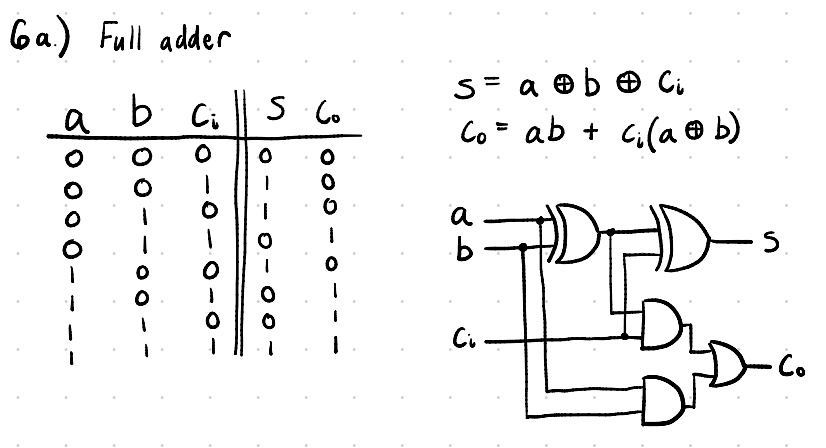 6a.) Full adder
a b Ci S Co
0 0 0 0 0
0 0 1 1 0
0 1 0 1 0
0 1 1 0 1
1 0 0 1 0
1 0 1 0 1
1 1 0 0 1
1 1 1 1 1
S = a ⊕ b ⊕ Ci
Co = ab + Ci(a ⊕ b)
a
b
S
Ci
Co